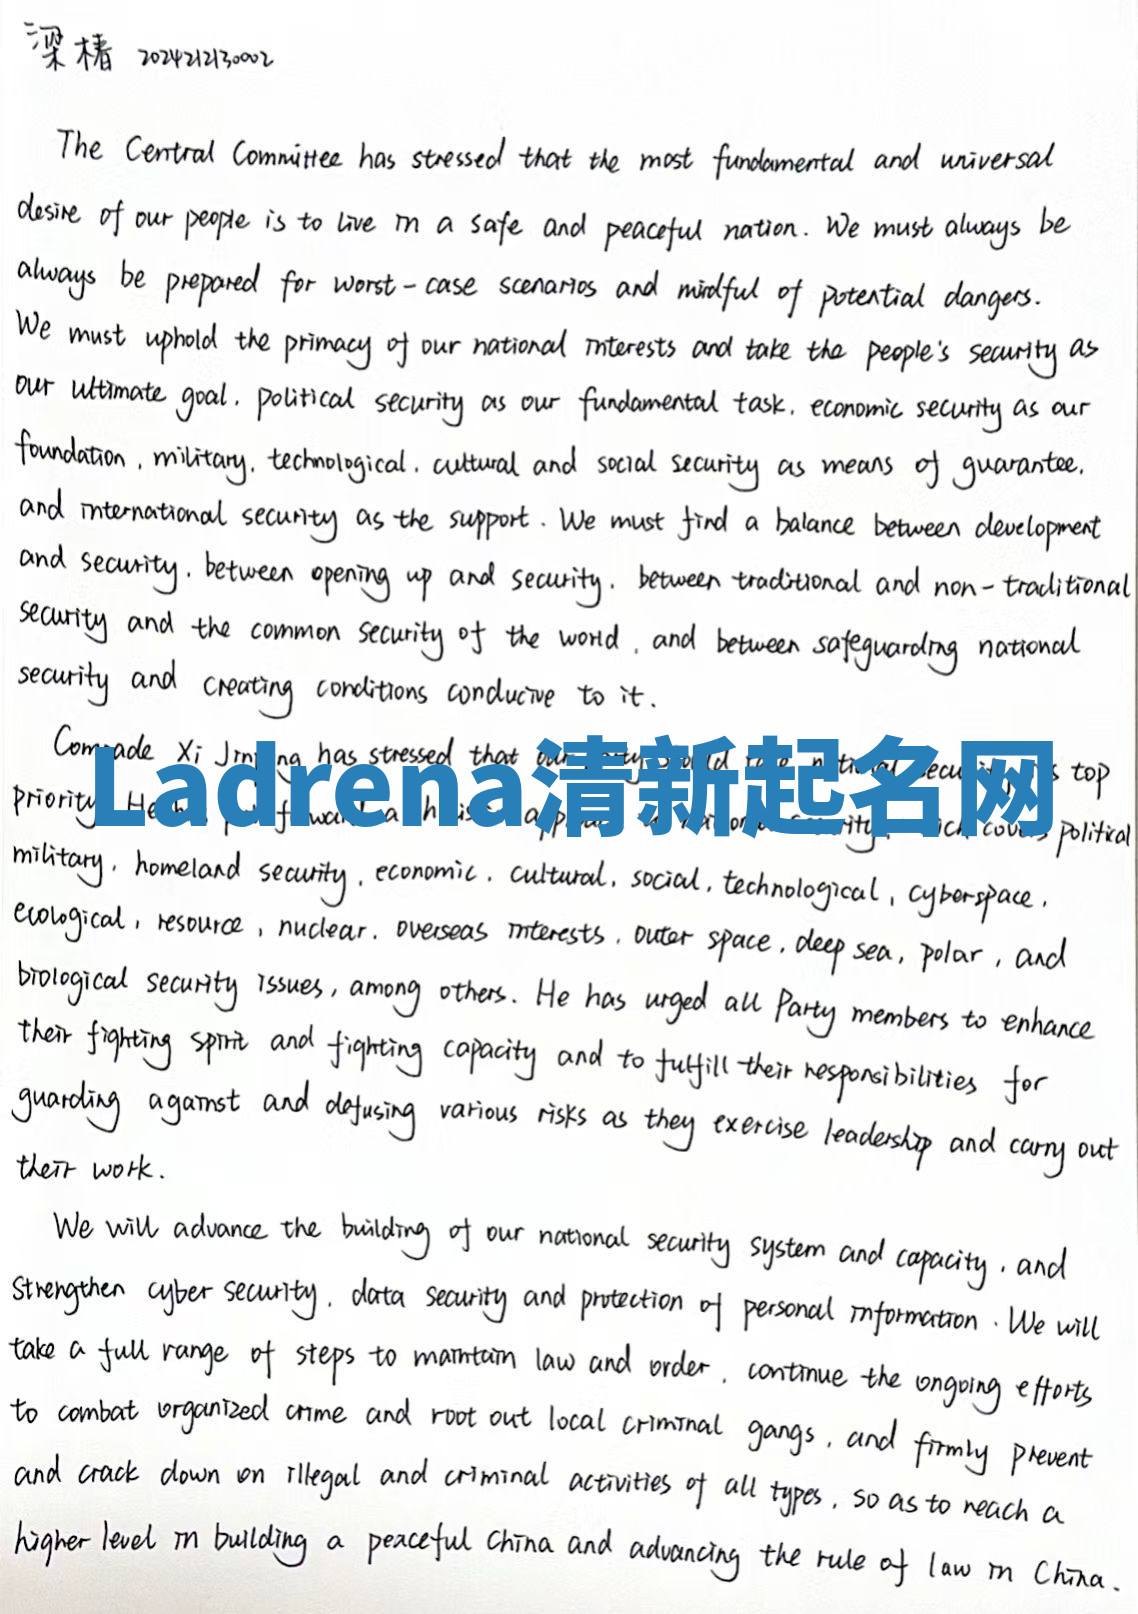 梁椿 2024212130002
The Central Committee has stressed that the most fundamental and universal
desire of our people is to live in a safe and peaceful nation. We must always be
always be prepared for worst-case scenarios and mindful of potential dangers.
We must uphold the primacy of our national interests and take the people's security as
our ultimate goal, political security as our fundamental task, economic security as our
foundation, military, technological, cultural and social security as means of guarantee,
and international security as the support. We must find a balance between development
and security, between opening up and security, between traditional and non-traditional
security and the common security of the world, and between safeguarding national
security and creating conditions conducive to it.
Comrade Xi Jinping has stressed that our top
Ladrena清新起名网
priority. political
military, homeland security, economic, cultural, social, technological, cyberspace,
ecological, resource, nuclear, overseas interests, outer space, deep sea, polar, and
biological security issues, among others. He has urged all Party members to enhance
their fighting spirit and fighting capacity and to fulfill their responsibilities for
guarding against and defusing various risks as they exercise leadership and carry out
their work.
We will advance the building of our national security system and capacity, and
strengthen cyber security, data security and protection of personal information. We will
take a full range of steps to maintain law and order, continue the ongoing efforts
to combat organized crime and root out local criminal gangs, and firmly prevent
and crack down on illegal and criminal activities of all types, so as to reach a
higher level in building a peaceful China and advancing the rule of law in China.